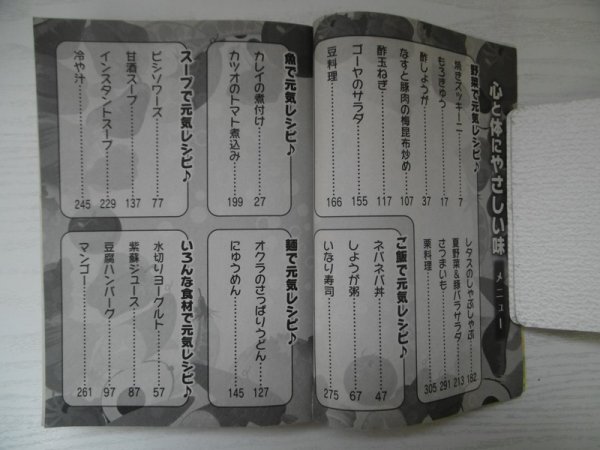 心と体にやさしい味 メニュー
野菜で元気レシピ♪
焼きズッキーニ……7
もろきゅう……17
酢しょうが……37
なすと豚肉の梅昆布炒め……107
酢玉ねぎ……117
ゴーヤのサラダ……155
豆料理……166
レタスのしゃぶしゃぶ……182
夏野菜&豚バラサラダ……213
さつまいも……291
栗料理……305
ご飯で元気レシピ♪
ネバネバ丼……47
しょうが粥……67
いなり寿司……275
魚で元気レシピ♪
カレイの煮付け……27
カツオのトマト煮込み……199
麺で元気レシピ♪
オクラのさっぱりうどん……127
にゅうめん……145
スープで元気レシピ♪
ビシソワーズ……77
甘酒スープ……137
インスタントスープ……229
冷や汁……245
いろんな食材で元気レシピ♪
水切りヨーグルト……57
紫蘇ジュース……87
豆腐ハンバーグ……97
マンゴー……261